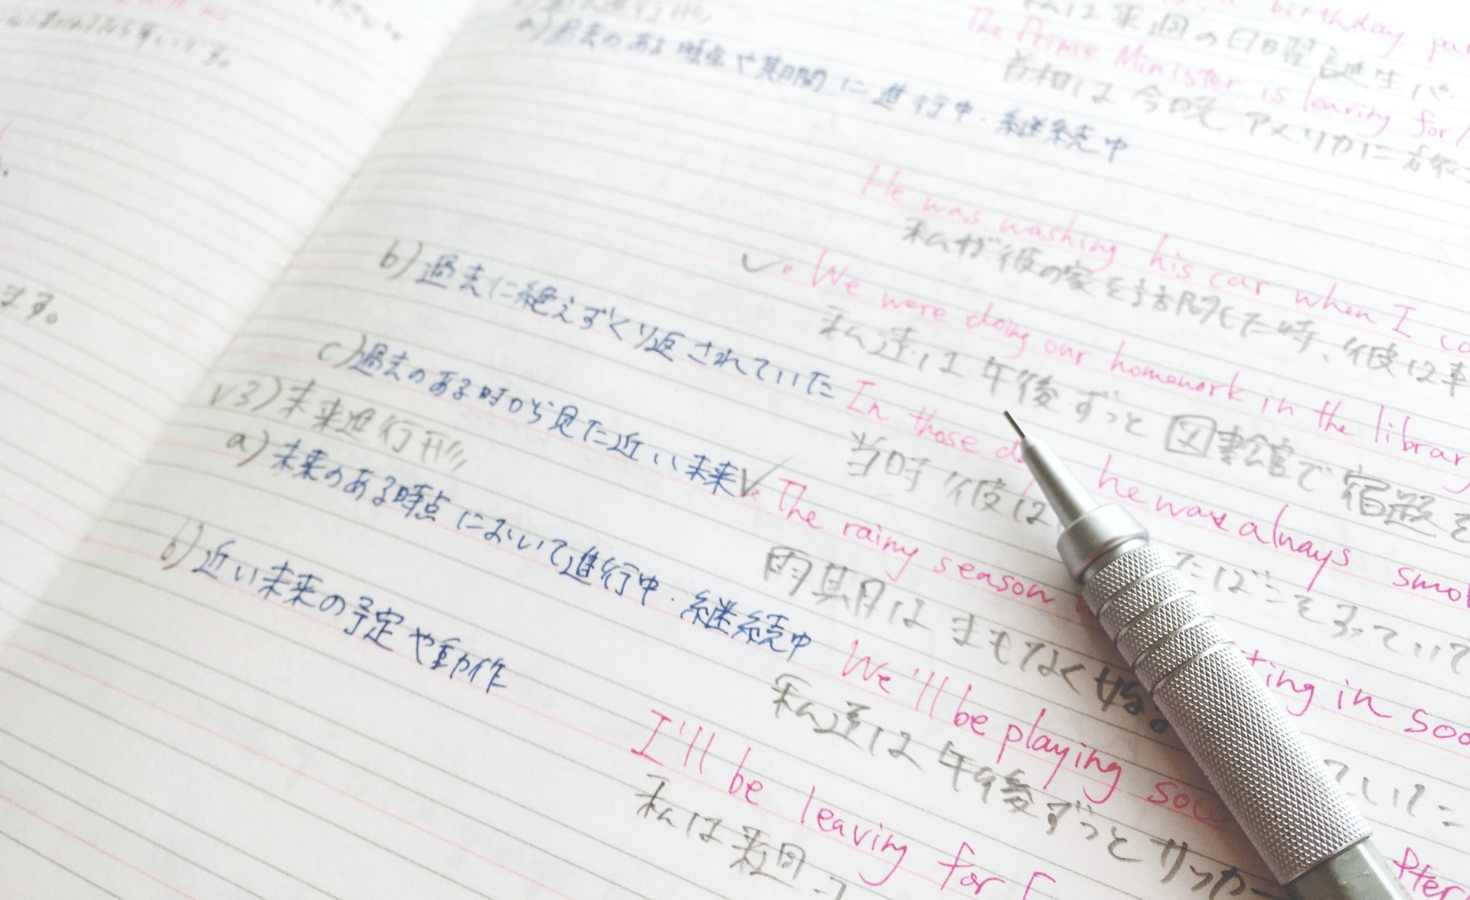 a) 過去のある時点や期間に進行中・継続中
b) 過去に絶えずくり返されていた
c) 過去のある時から見た近い未来
✓3) 未来進行形
a) 未来のある時点において進行中・継続中
b) 近い未来の予定や動作
birthday
私は来週の日曜日誕生パー
The Prime Minister is leaving for
首相は今晩アメリカに
He was washing his car when I
私が彼の家を訪問した時、彼は車
✓。We were doing our homework in the library
私達は午後ずっと図書館で宿題を
In those he was always
当時彼は たばこを
✓。The rainy season ting in
雨期はまもなく始
We'll be playing
私達は午後ずっとサッカー
I'll be leaving for
私は
ます。